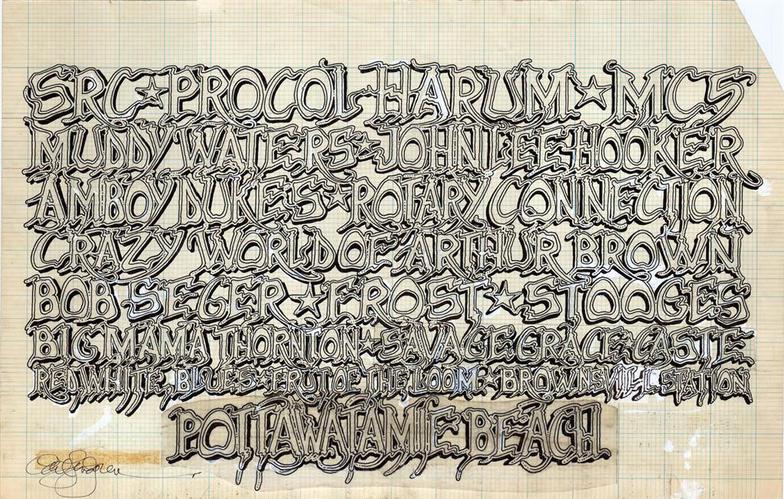 SRC ★ PROCOL HARUM ★ MC5
MUDDY WATERS ★ JOHN LEE HOOKER
AMBOY DUKES ★ ROTARY CONNECTION
CRAZY WORLD OF ARTHUR BROWN
BOB SEGER ★ FROST ★ STOOGES
BIG MAMA THORNTON ★ SAVAGE GRACE CASTE
RED WHITE, BLUES FRUT OF THE LOOM BROWNSVILL STATION
POTTAWATAMIE BEACH